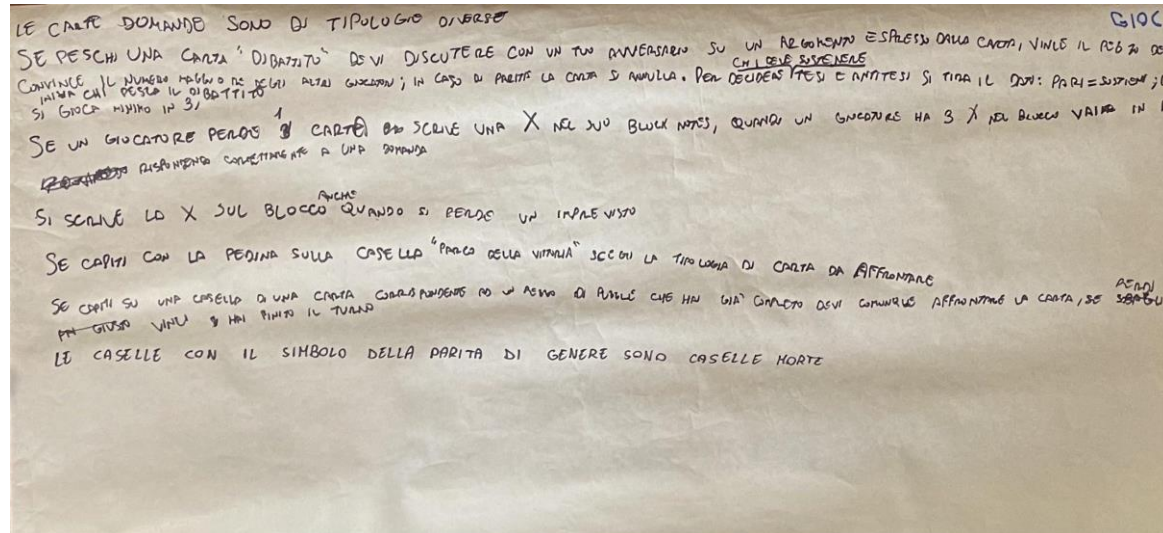 LE CARTE DOMANDE SONO DI TIPOLOGIE DIVERSE
GIOC
SE PESCHI UNA CARTA "DIBATTITO" DEVI DISCUTERE CON UN TUO AVVERSARIO SU UN ARGOMENTO ESPRESSO DALLA CARTA, VINCE IL PEZZO DE
CHI DEVE SOSTENERE
CONVINCE IL NUMERO MAGGIORE DEGLI ALTRI GIOCATORI; IN CASO DI PARITÀ LA CARTA SI ANNULLA. PER DECIDERE TESI E ANTITESI SI TIRA IL DADO: PARI=SOSTIENI;
INIZIA CHI PESCA IL DIBATTITO
SI GIOCA MINIMO IN 3,
SE UN GIOCATORE PERDE 1 CARTA SCRIVE UNA X NEL SUO BLOCK NOTES, QUANDO UN GIOCATORE HA 3 X NEL BLOCCO VA IN
RISPONDENDO CORRETTAMENTE A UNA DOMANDA
SI SCRIVE LA X SUL BLOCCO ANCHE QUANDO SI PERDE UN IMPREVISTO
SE CAPITI CON LA PEDINA SULLA CASELLA "PARCO DELLA VITTORIA" SCEGLI LA TIPOLOGIA DI CARTA DA AFFRONTARE
SE CAPITI SU UNA CASELLA DI UNA CARTA CORRISPONDENTE AD UN PEZZO DI PUZZLE CHE HAI GIÀ COMPLETO DEVI COMUNQUE AFFRONTARE LA CARTA, SE PERDI
VINCI HAI FINITO IL TURNO
LE CASELLE CON IL SIMBOLO DELLA PARITA DI GENERE SONO CASELLE MORTE